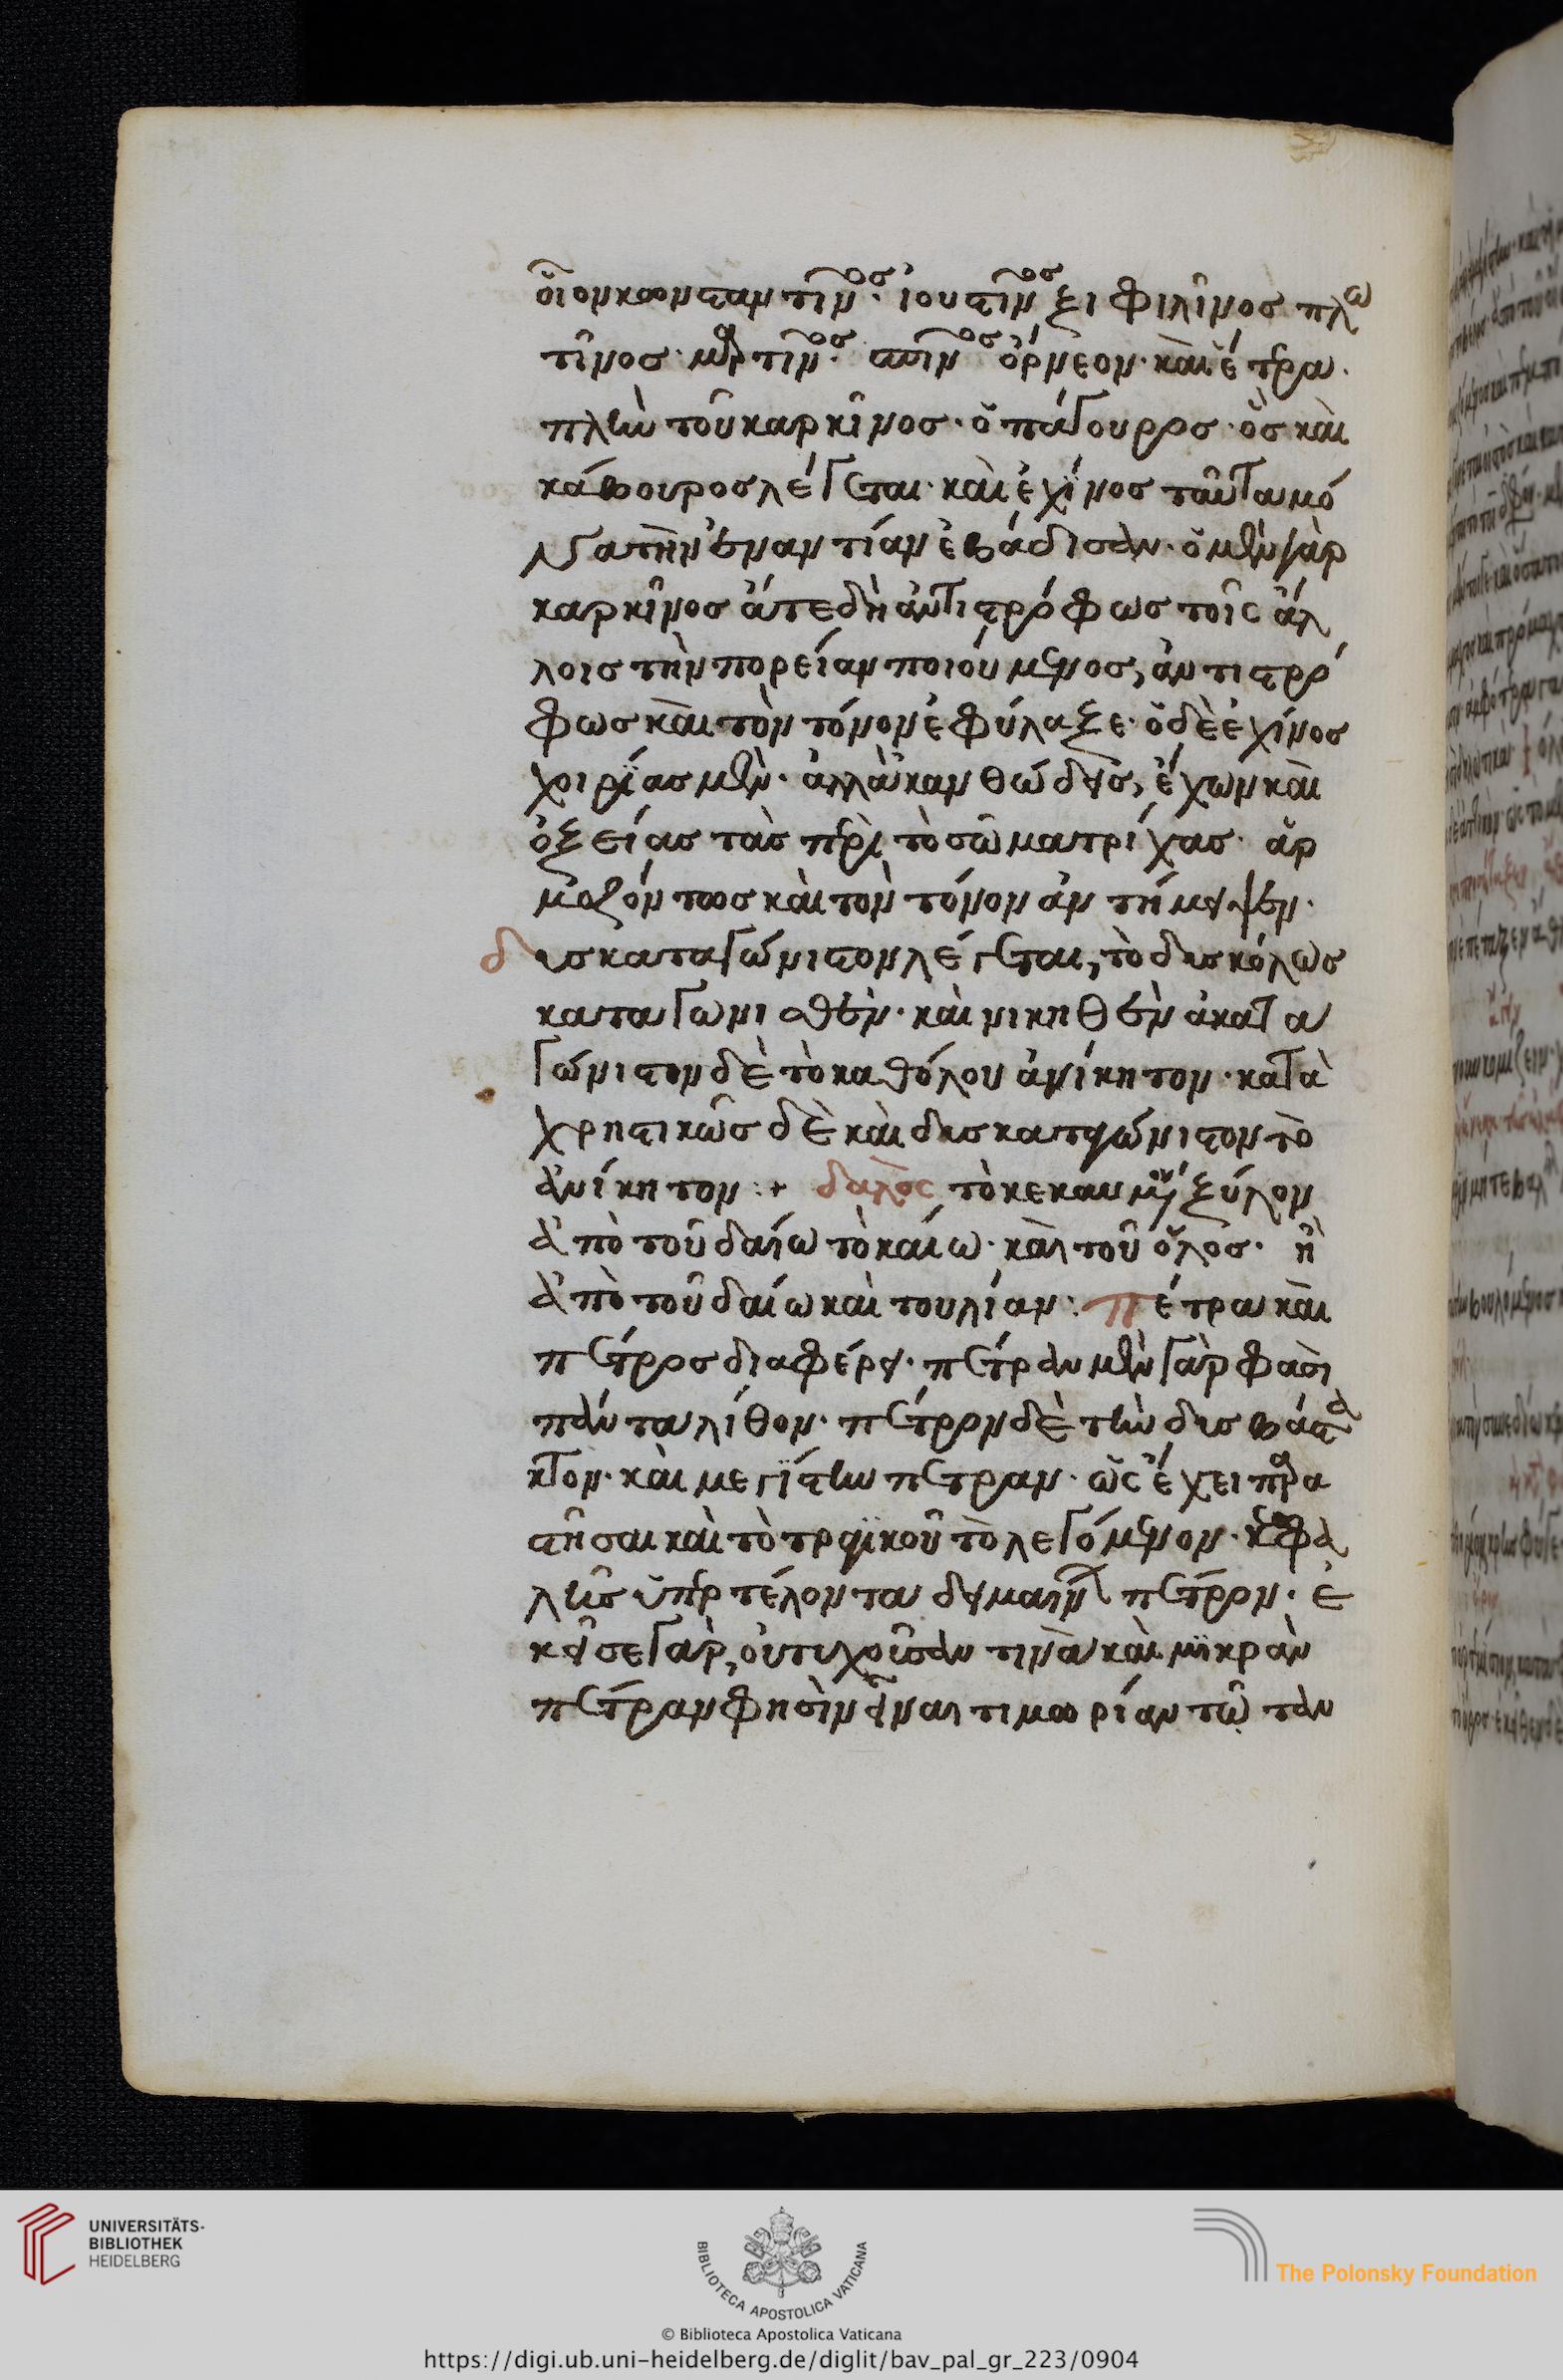 οἷον κωνσταντῖνος· ἰουστῖνος ξιφιλῖνος πλω
τῖνος· μαρτῖνος· ὄρνεον· καὶ ἕτερα·
πλὴν τοῦ καρκῖνος· ὁ πάγουρος· ὃς καὶ
κάβουρος λέγεται· καὶ ἐχῖνος ταῦτα μό
να τὴν ἐναντίαν ἐβάδισαν· ὁ μὲν γὰρ
καρκῖνος ἅτε δὴ ἀντιστρόφως τοῖς ἄλ
λοις τὴν πορείαν ποιούμενος, ἀντιστρό
φως καὶ τὸν τόνον ἐφύλαξε· ὁ δὲ ἐχίνος
χοιρίας μὲν· ἀλλ' ἀκανθώδεις, ἔχων καὶ
ὀξείας τὰς περὶ τὸ σῶμα τρίχας· ἁρ
μοζόντως καὶ τὸν τόνον ἀντήμειψεν·
δυσκαταγώνιστον λέγεται, τὸ δυσκόλως
καταγωνισθὲν· καὶ νικηθὲν ἀκατα
γώνιστον δὲ τὸ καθόλου ἀνίκητον· κατα
χρηστικῶς δὲ καὶ δυσκαταγώνιστον τὸ
ἀνίκητον :+ δαλὸς τὸ κεκαυμένον ξύλον
ἀπὸ τοῦ δαίω τὸ καίω· καὶ τοῦ ὅλος· ἢ
ἀπὸ τοῦ δαίω καὶ τοῦ λίαν: πέτρα καὶ
πέτρος διαφέρει· πέτραν μὲν γὰρ φασὶ
πάντα λίθον· πέτρον δὲ τὴν δυσβάστα
κτον· καὶ μεγίστην πέτραν· ὡς ἔχει παρα
στῆσαι καὶ τὸ τραγικοῦ τὸ λεγόμενον· κεφα
λῆς ὑπερτέλλοντα δειμαίνει πέτρον· ἐ
κεῖσε γὰρ, οὐ τυχοῦσαν τινὰ καὶ μικρὰν
πέτραν φησὶν εἶναι τιμωρίαν τῶ ταν
© Biblioteca Apostolica Vaticana
https://digi.ub.uni-heidelberg.de/diglit/bav_pal_gr_223/0904
UNIVERSITÄTS-
BIBLIOTHEK
HEIDELBERG
BIBLIOTECA APOSTOLICA VATICANA
The Polonsky Foundation